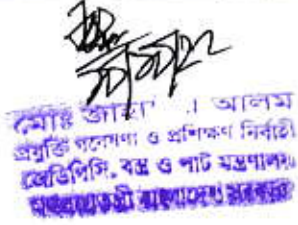 মোঃ জাহা আলম
প্রযুক্তি গবেষণা ও প্রশিক্ষণ নির্বাহী
জেডিপিসি, বস্ত্র ও পাট মন্ত্রণালয়।
গণপ্রজাতন্ত্রী বাংলাদেশ সরকার